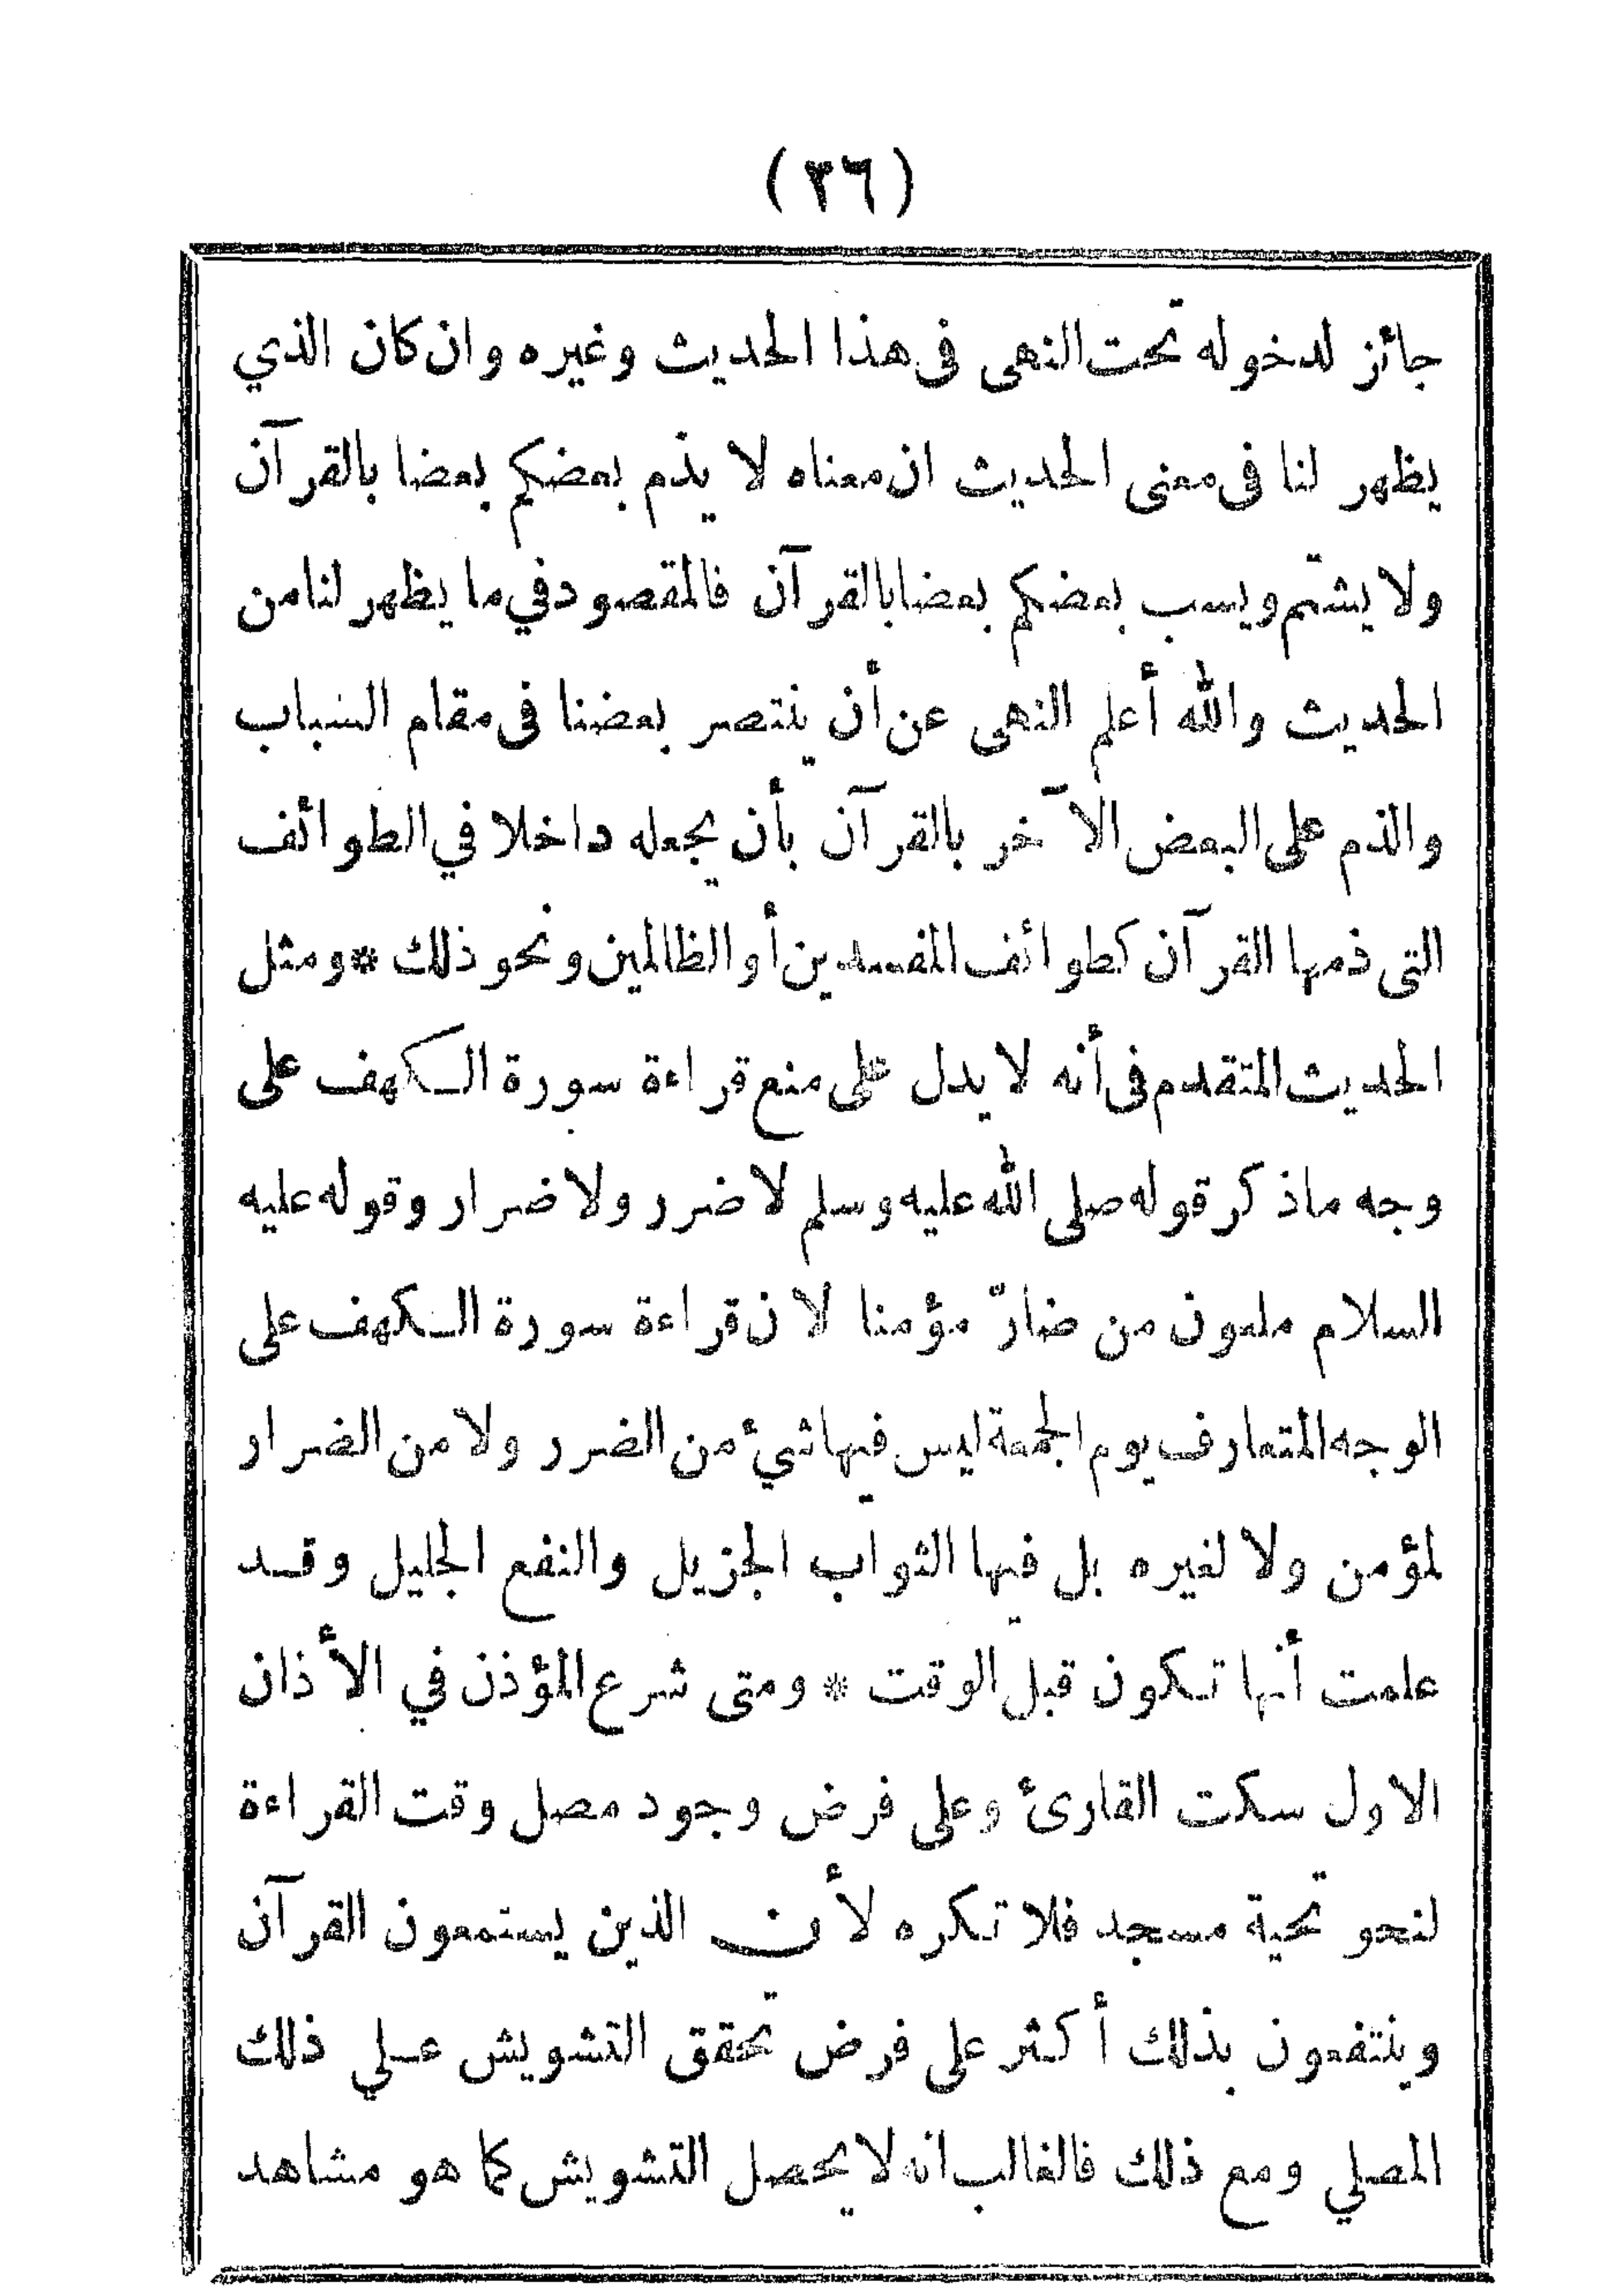 (٣٦)
جائز لدخوله تحت النهى فى هذا الحديث وغيره وان كان الذي
يظهر لنا فى معنى الحديث ان معناه لا يذم بعضكم بعضا بالقرآن
ولا يشتم ويسب بعضكم بعضا بالقرآن فالمقصود في ما يظهر لنا من
الحديث والله أعلم النهى عن أن ينتصر بعضنا فى مقام السباب
والذم على البعض الآخر بالقرآن بأن يجعله داخلا في الطوائف
التى ذمها القرآن كطوائف المفسدين أو الظالمين ونحو ذلك * ومثل
الحديث المتقدم فى أنه لا يدل على منع قراءة سورة الكهف على
وجه ماذكر قوله صلى الله عليه وسلم لا ضرر ولا ضرار وقوله عليه
السلام ملعون من ضارّ مؤمنا لان قراءة سورة الكهف على
الوجه المتعارف يوم الجمعة ليس فيها شيء من الضرر ولا من الضرار
لمؤمن ولا لغيره بل فيها الثواب الجزيل والنفع الجليل وقد
علمت أنها تكون قبل الوقت * ومتى شرع المؤذن في الأذان
الاول سكت القارئ وعلى فرض وجود مصل وقت القراءة
لنحو تحية مسجد فلا تكره لأن الذين يستمعون القرآن
وينتفعون بذلك أكثر على فرض تحقق التشويش على ذلك
المصلي ومع ذلك فالغالب انه لا يحصل التشويش كما هو مشاهد